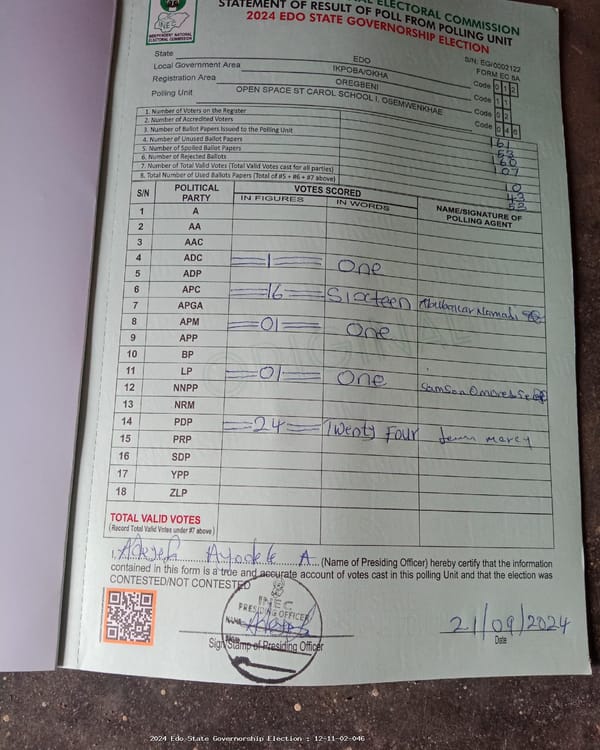 INDEPENDENT NATIONAL
ELECTORAL COMMISSION
AL ELECTORAL COMMISSION
STATEMENT OF RESULT OF POLL FROM POLLING UNIT
2024 EDO STATE GOVERNORSHIP ELECTION
S/N: EG/0002122
FORM EC 8A
State EDO Code 0 1 2
Local Government Area IKPOBA/OKHA Code 1 1
Registration Area OREGBENI Code 0 2
Polling Unit OPEN SPACE ST CAROL SCHOOL I. OSEMWENKHAE Code 0 4 6
1. Number of Voters on the Register 161
2. Number of Accredited Voters 53
3. Number of Ballot Papers Issued to the Polling Unit 160
4. Number of Unused Ballot Papers 107
5. Number of Spoiled Ballot Papers
6. Number of Rejected Ballots 10
7. Number of Total Valid Votes (Total Valid Votes cast for all parties) 43
8. Total Number of Used Ballots Papers (Total of #5 + #6 + #7 above) 53
S/N POLITICAL PARTY VOTES SCORED NAME/SIGNATURE OF POLLING AGENT
IN FIGURES IN WORDS
1 A
2 AA
3 AAC
4 ADC 1 One
5 ADP
6 APC 16 Sixteen Abubakar Mamadi
7 APGA
8 APM 01 One
9 APP
10 BP
11 LP 01 One Samson
12 NNPP
13 NRM
14 PDP 24 Twenty Four
15 PRP
16 SDP
17 YPP
18 ZLP
ORIGINAL
TOTAL VALID VOTES
(Record Total Valid Votes under #7 above)
I, Ayodele A (Name of Presiding Officer) hereby certify that the information
contained in this form is a true and accurate account of votes cast in this polling Unit and that the election was
CONTESTED/NOT CONTESTED
INEC
PRESIDING OFFICER
NAME
Sign/Stamp of Presiding Officer
21/09/2024
Date
2024 Edo State Governorship Election : 12-11-02-046